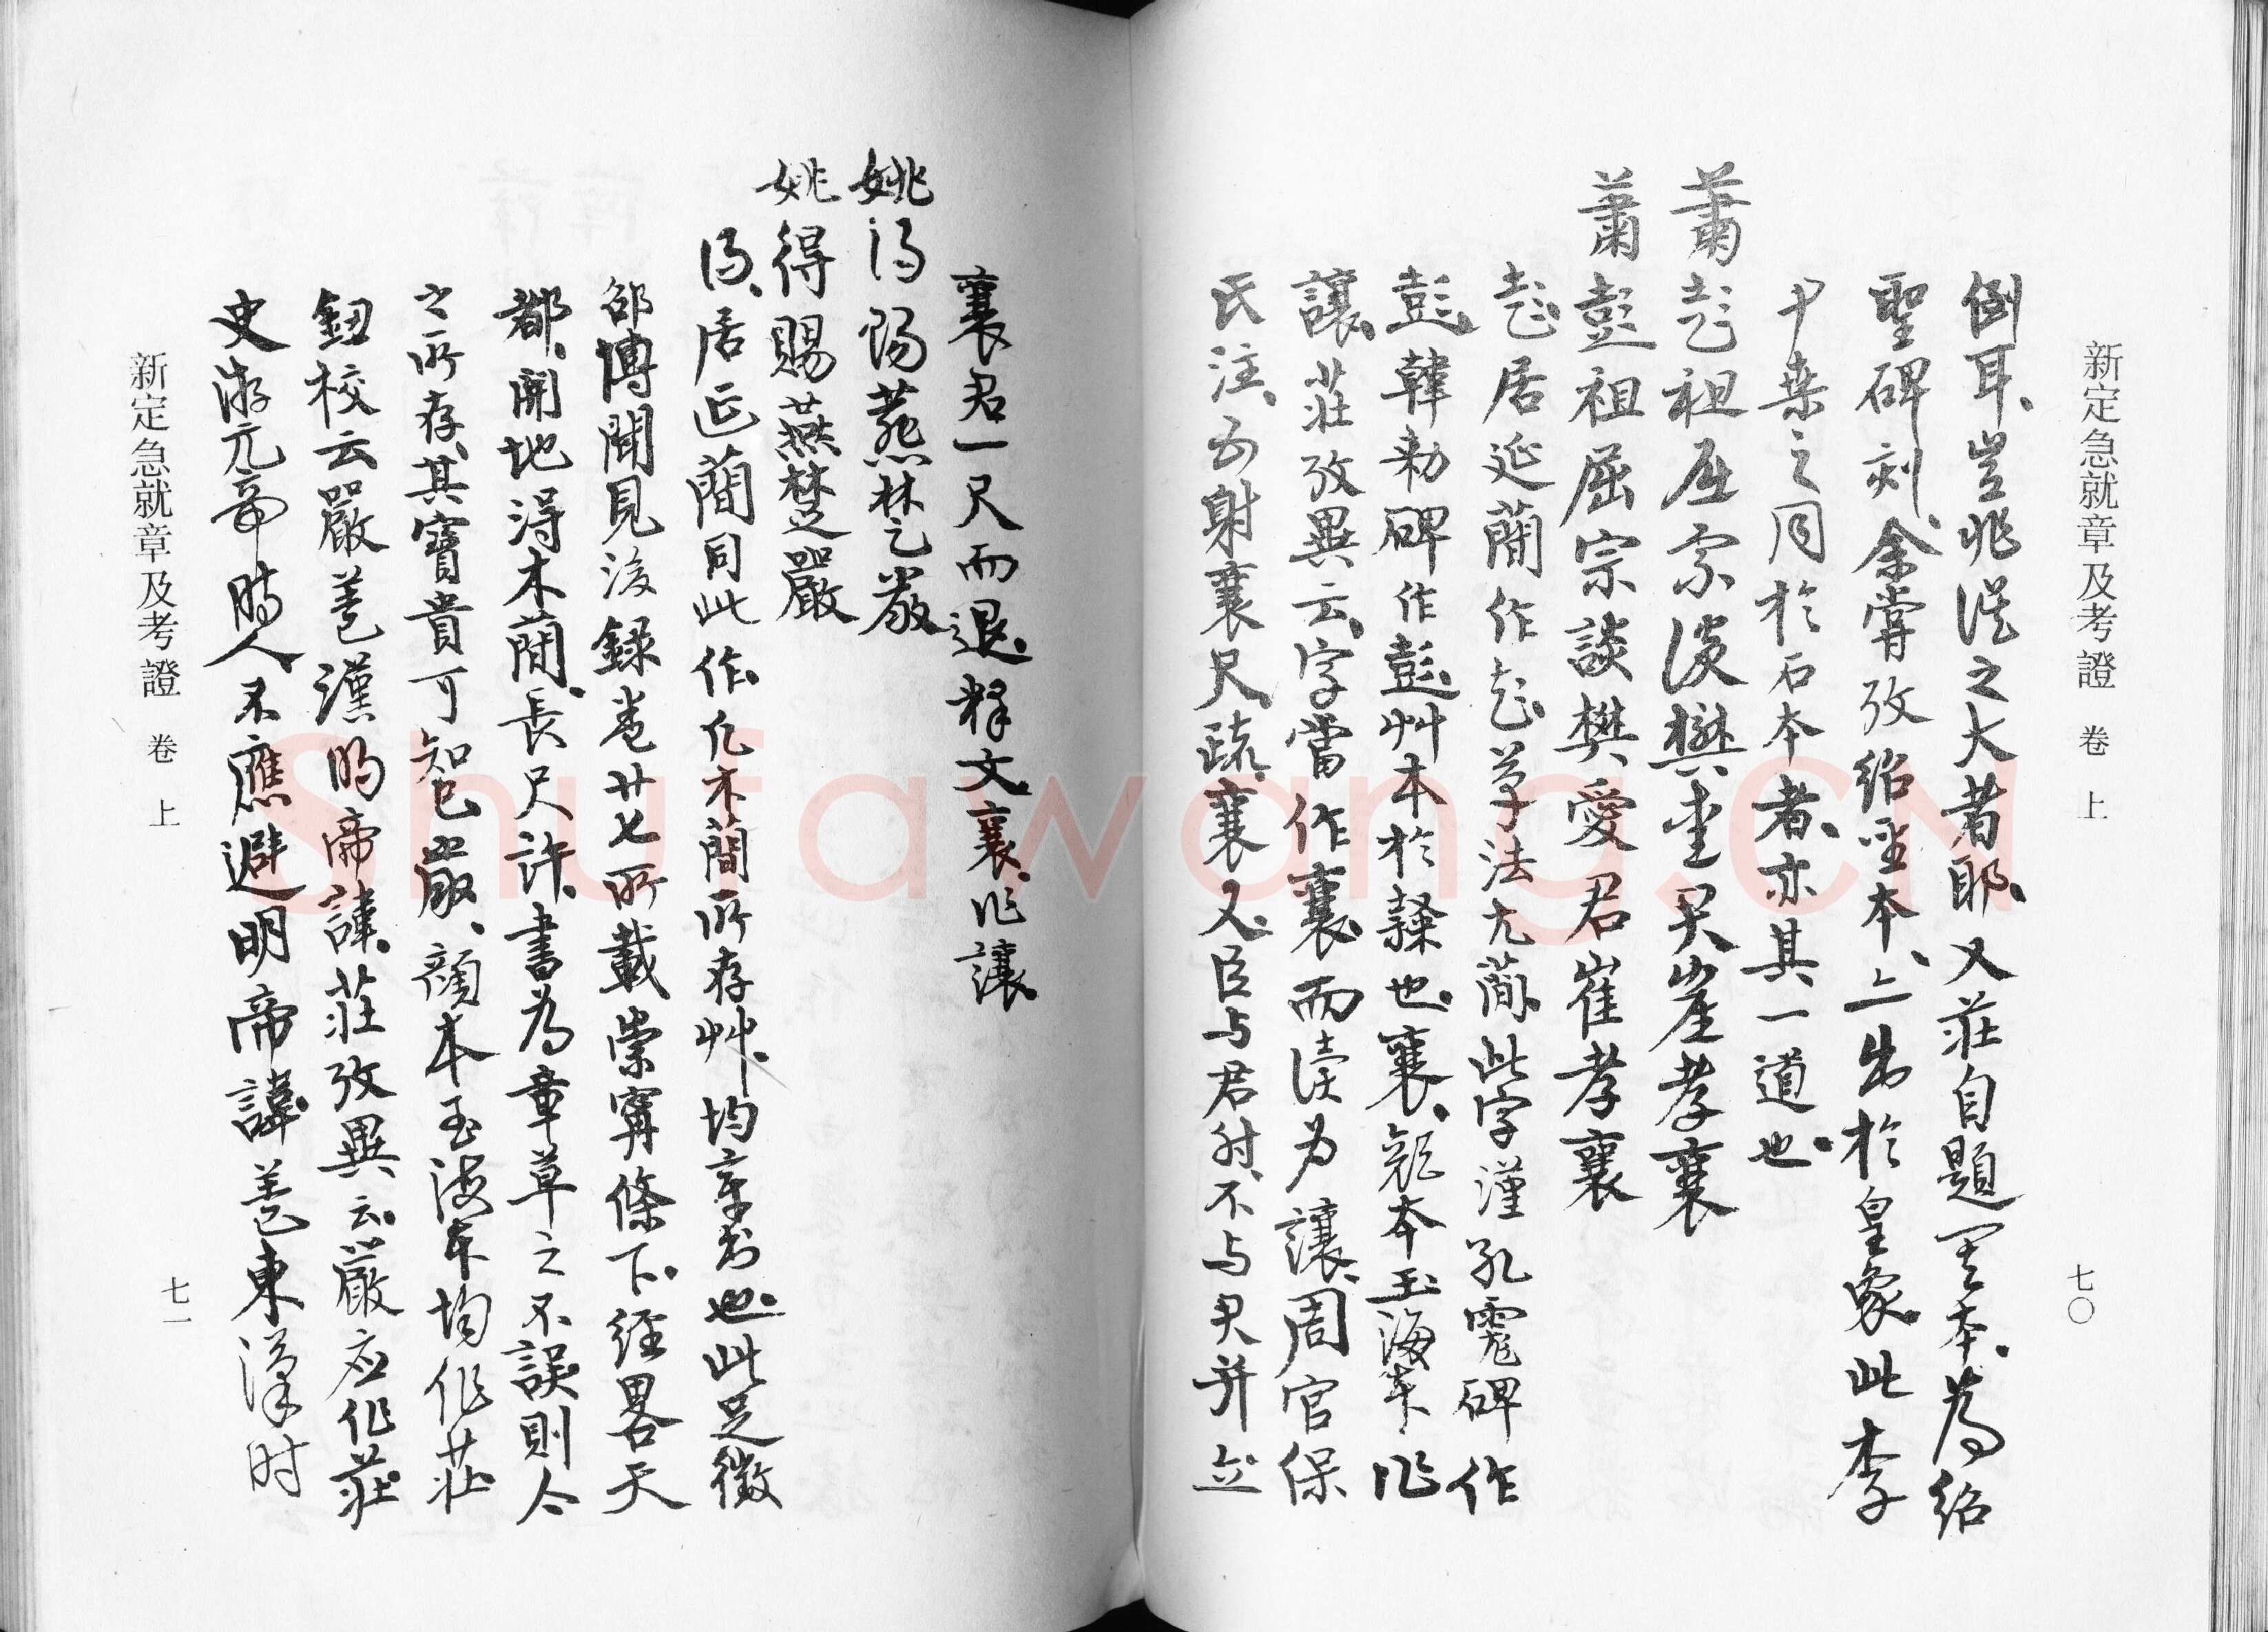 新定急就章及考證 卷上
七〇
倒耳、豈非淫之大者耶、又莊自題一本、為紹
聖碑刻、余嘗攷紹聖本、上出於皇象、此李
之同於石本者、亦其一道也、
蕭彭祖屈宗談樊愛君崔孝襄
蕭彭祖屈宗談樊愛君崔孝襄
彭、居延蕳作彭、草法尤蕳、此字漢孔霓碑作
彭、韓勑碑作彭、艸本於隸也、襄、顏本玉海本作
讓、莊攷異云、字當作襄、而讀为讓、周官保
氏注、五射襄尺、疏、襄尺、臣与君射、不与君并立
襄君一尺而退、释文襄、作讓、
姚得賜燕楚嚴
姚得賜燕楚嚴
得、居延蕳同此作、凡木蕳所存艸、均章书也、此足徵
邵博聞見後録卷廿七所載崇甯條下、经畧天
都、開地得木蕳、長尺許、書為章草之不誤、則今
之所存、其寶貴可知已、嚴、顏本玉海本均作莊
鈕校云嚴蓋漢明帝諱、莊攷異云、嚴应作莊
史游元帝時人不應避明帝諱、蓋東漢时
新定急就章及考證 卷上
七一
Shufawang.CN